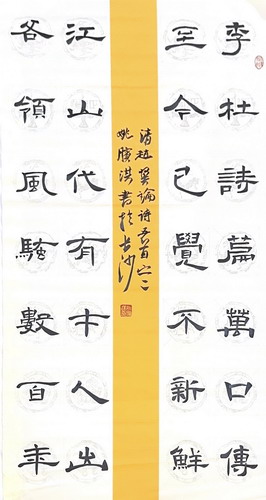 李杜詩篇萬口傳
至今已覺不新鮮
江山代有才人出
各領風騷數百年
清趙翼論詩五首之二
姚廣淇書於長沙